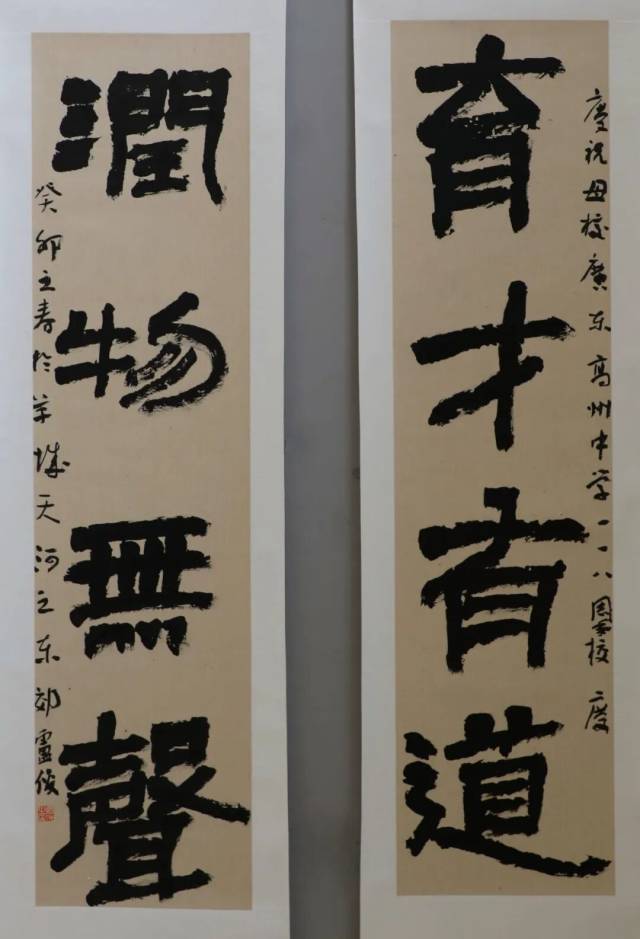 育才有道
慶祝母校廣东高州中学一一八周年校慶
潤物無聲
癸卯之春於羊城天河之东郊盧俊